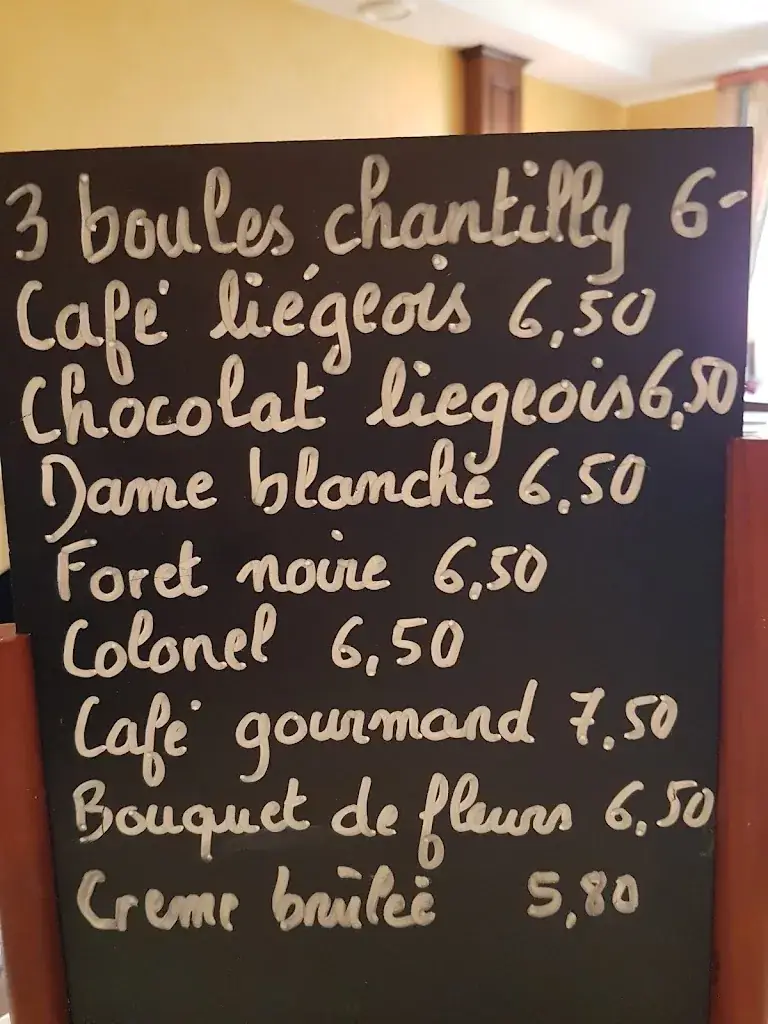 3 boules chantilly 6-
Café liégeois 6,50
Chocolat liegeois 6,50
Dame blanche 6,50
Foret noire 6,50
Colonel 6,50
Café gourmand 7,50
Bouquet de fleurs 6,50
Creme brûlée 5,80